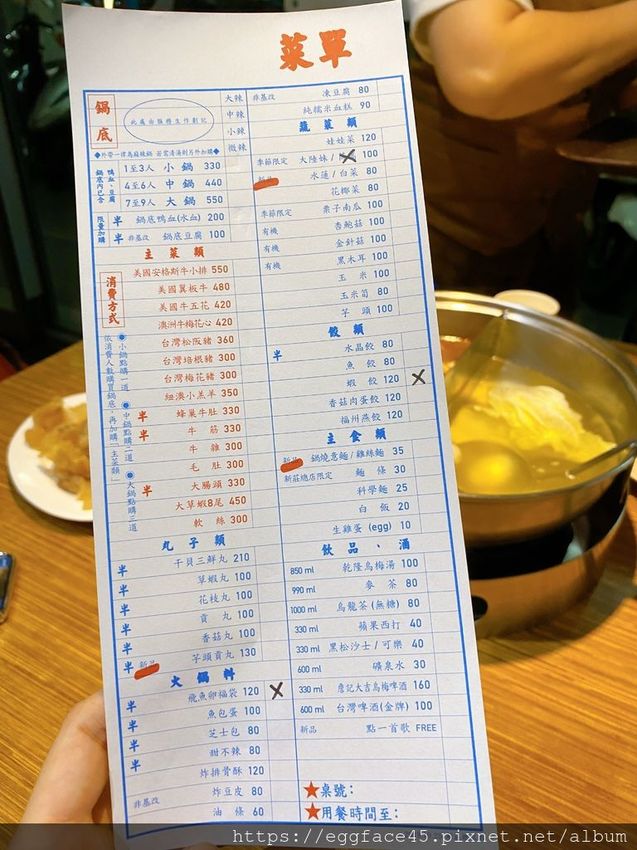 菜單
鍋底
此處由服務生作劃記
大辣
中辣
小辣
微辣
◆外帶一律為麻辣鍋 若需清湯則另外加購◆
鍋底內已含
鴨血、豆腐
1至3人 小鍋 330
4至6人 中鍋 440
7至9人 大鍋 550
限量加購
半 鍋底鴨血(水血) 200
半 非基改 鍋底豆腐 100
主菜類
消費方式
依消費人數購買鍋底，再加購「主菜類」
◉小鍋點購一道
◉中鍋點購二道
◉大鍋點購三道
美國安格斯牛小排 550
美國翼板牛 480
美國牛五花 420
澳洲牛梅花心 420
台灣松阪豬 360
台灣培根豬 300
台灣梅花豬 300
紐澳小羔羊 350
半 蜂巢牛肚 330
半 牛筋 330
牛雜 300
毛肚 300
半 大腸頭 330
大草蝦8尾 450
軟絲 300
丸子類
半 干貝三鮮丸 210
半 草蝦丸 100
半 花枝丸 100
半 貢丸 100
半 香菇丸 100
半 新品 芋頭貢丸 130
火鍋料
半 飛魚卵福袋 120
半 魚包蛋 100
半 芝士包 80
半 甜不辣 80
炸排骨酥 120
非基改 炸豆皮 80
油條 60
非基改 凍豆腐 80
純糯米血糕 90
蔬菜類
娃娃菜 120
季節限定 大陸妹/ 100
新品 水蓮/白菜 80
花椰菜 80
季節限定 栗子南瓜 100
有機 香鮑菇 100
有機 金針菇 100
有機 黑木耳 100
玉米 100
玉米筍 80
芋頭 100
餃類
半 水晶餃 80
魚餃 80
蝦餃 120
香菇肉蛋餃 120
福州燕餃 120
主食類
新品 鍋燒意麵/雞絲麵 35
新莊總店限定 麵條 30
科學麵 25
白飯 20
生雞蛋(egg) 10
飲品、酒
850 ml 乾隆烏梅湯 100
990 ml 麥茶 80
1000 ml 烏龍茶(無糖) 80
330 ml 蘋果西打 40
330 ml 黑松沙士/可樂 40
600 ml 礦泉水 30
330 ml 詹記大吉烏梅啤酒 160
600 ml 台灣啤酒(金牌) 100
新品 點一首歌 FREE
★桌號：
★用餐時間至：
https://eggface45.pixnet.net/album